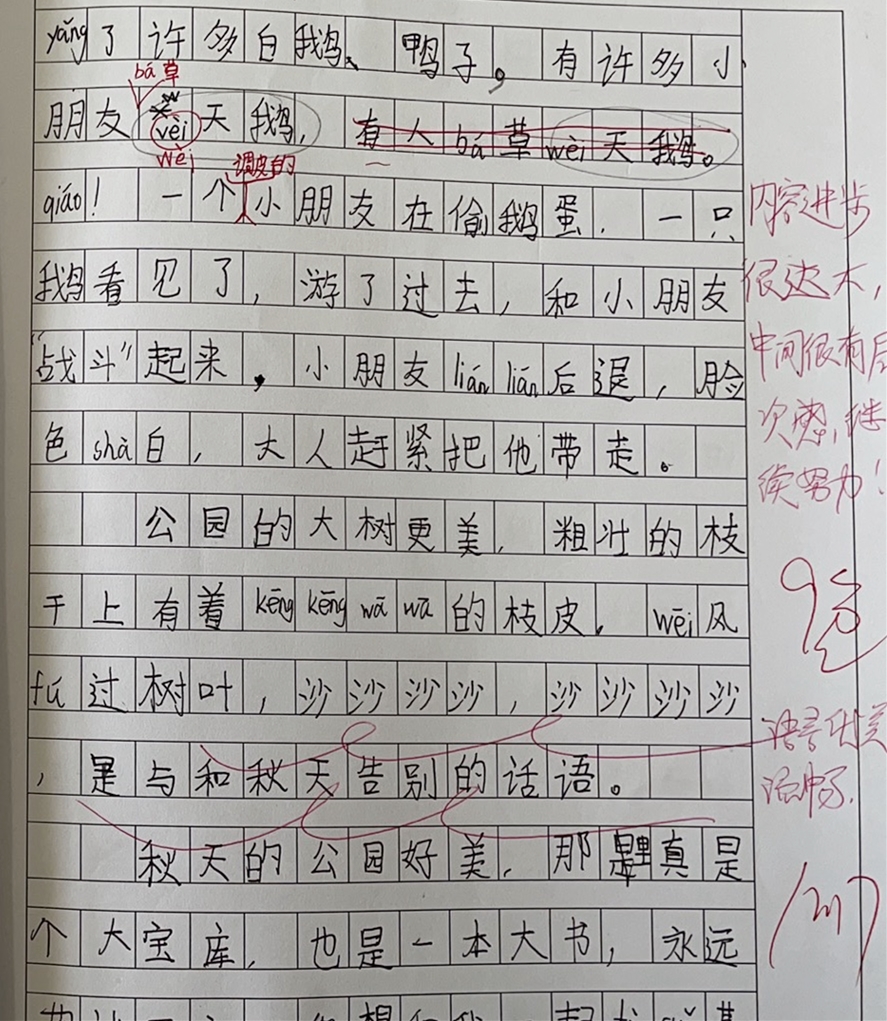 yǎng了许多白鹅、鸭子。有许多小
bá草
朋友wèi天鹅,有人bá草wèi天鹅。
wèi
调皮的
qiáo!一个小朋友在偷鹅蛋.一只
鹅看见了,游了过去,和小朋友
"战斗"起来,小朋友lián lián后退,脸
色shà白,大人赶紧把他带走。
公园的大树更美.粗壮的枝
干上有着kēng kēng wā wā的枝皮.wēi风
fú过树叶,沙沙沙沙,沙沙沙沙
,是与和秋天告别的话语。
秋天的公园好美.那里真是
个大宝库,也是一本大书,永远
内容进步
很大,
中间很有层
次感,继
续努力!
语言优美
流畅.